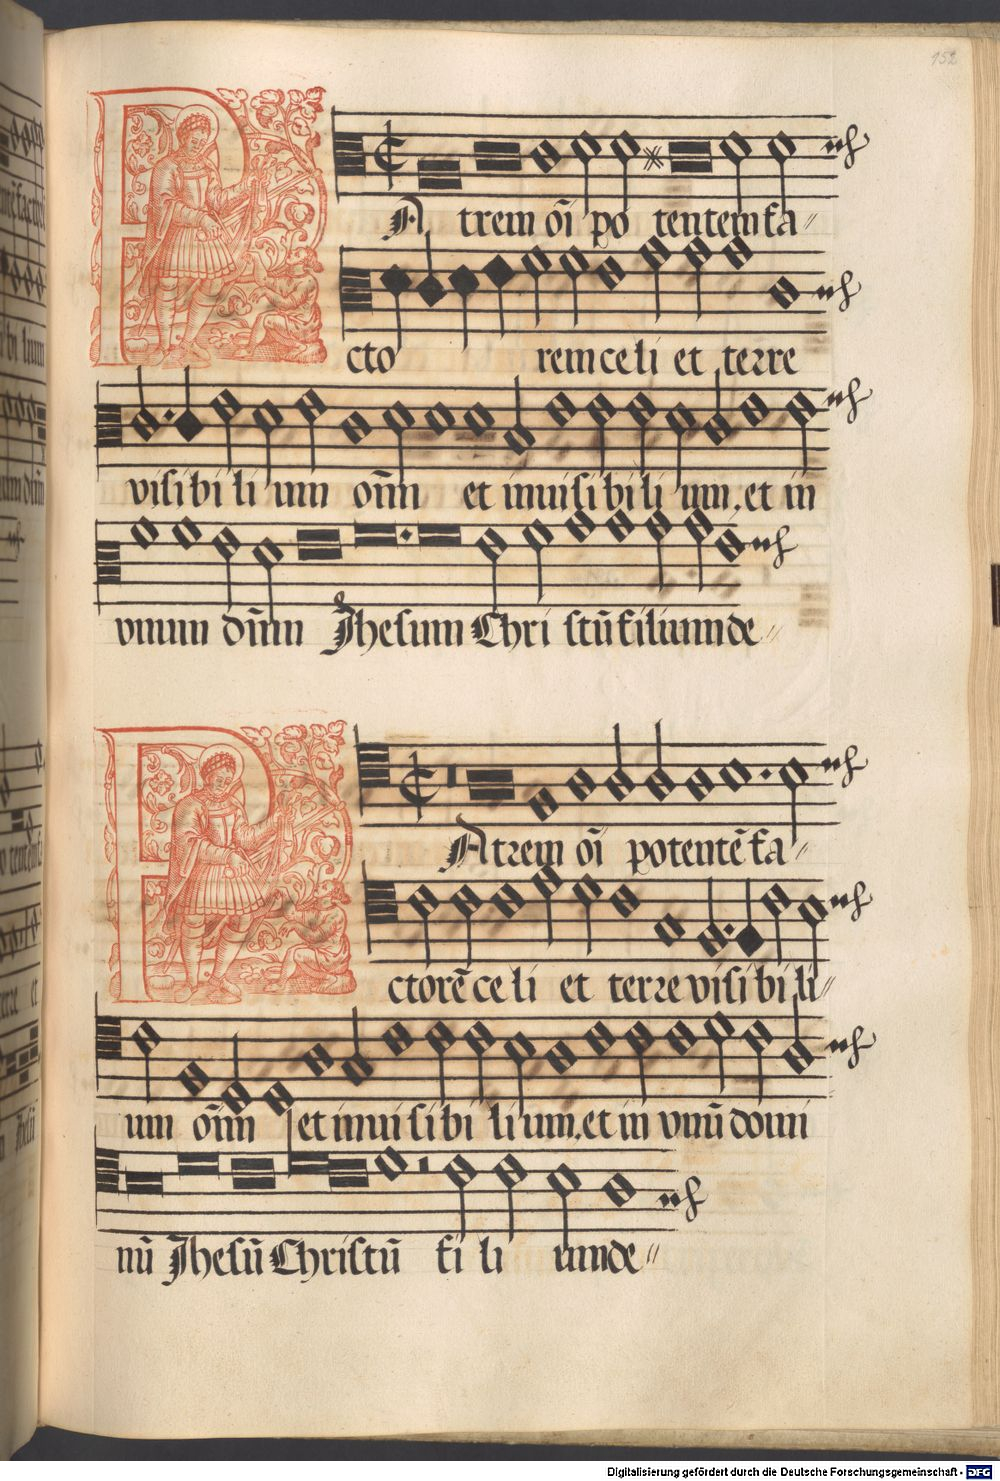 152
PA trem oı̄ po tentem fa〃
cto rem celi et terre
visibi li um om̄n et inuisibili um, et in
vnum dn̄m Jhesum Chri stū filium de〃
PAtrem oı̄ potentē fa〃
ctorē ce li et terre visi bi li〃
um om̄n et inui si bi li um, et in vnū domi
nū Jhesū Christū fi li um de〃
Digitalisierung gefördert durch die Deutsche Forschungsgemeinschaft - DFG